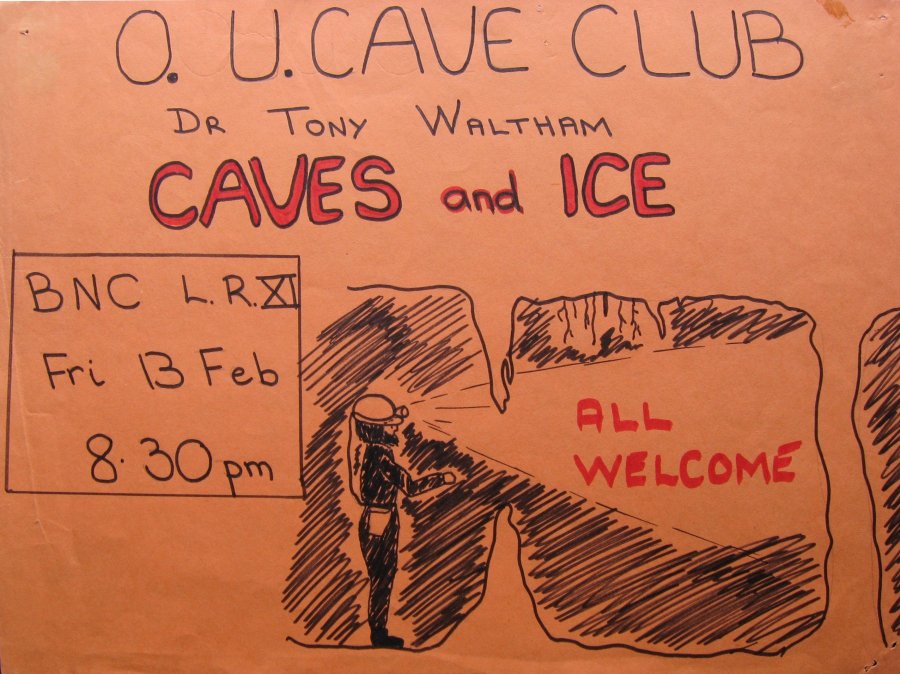 O. U. CAVE CLUB
DR TONY WALTHAM
CAVES and ICE
BNC L. R. XI
Fri 13 Feb
8.30pm
ALL
WELCOME